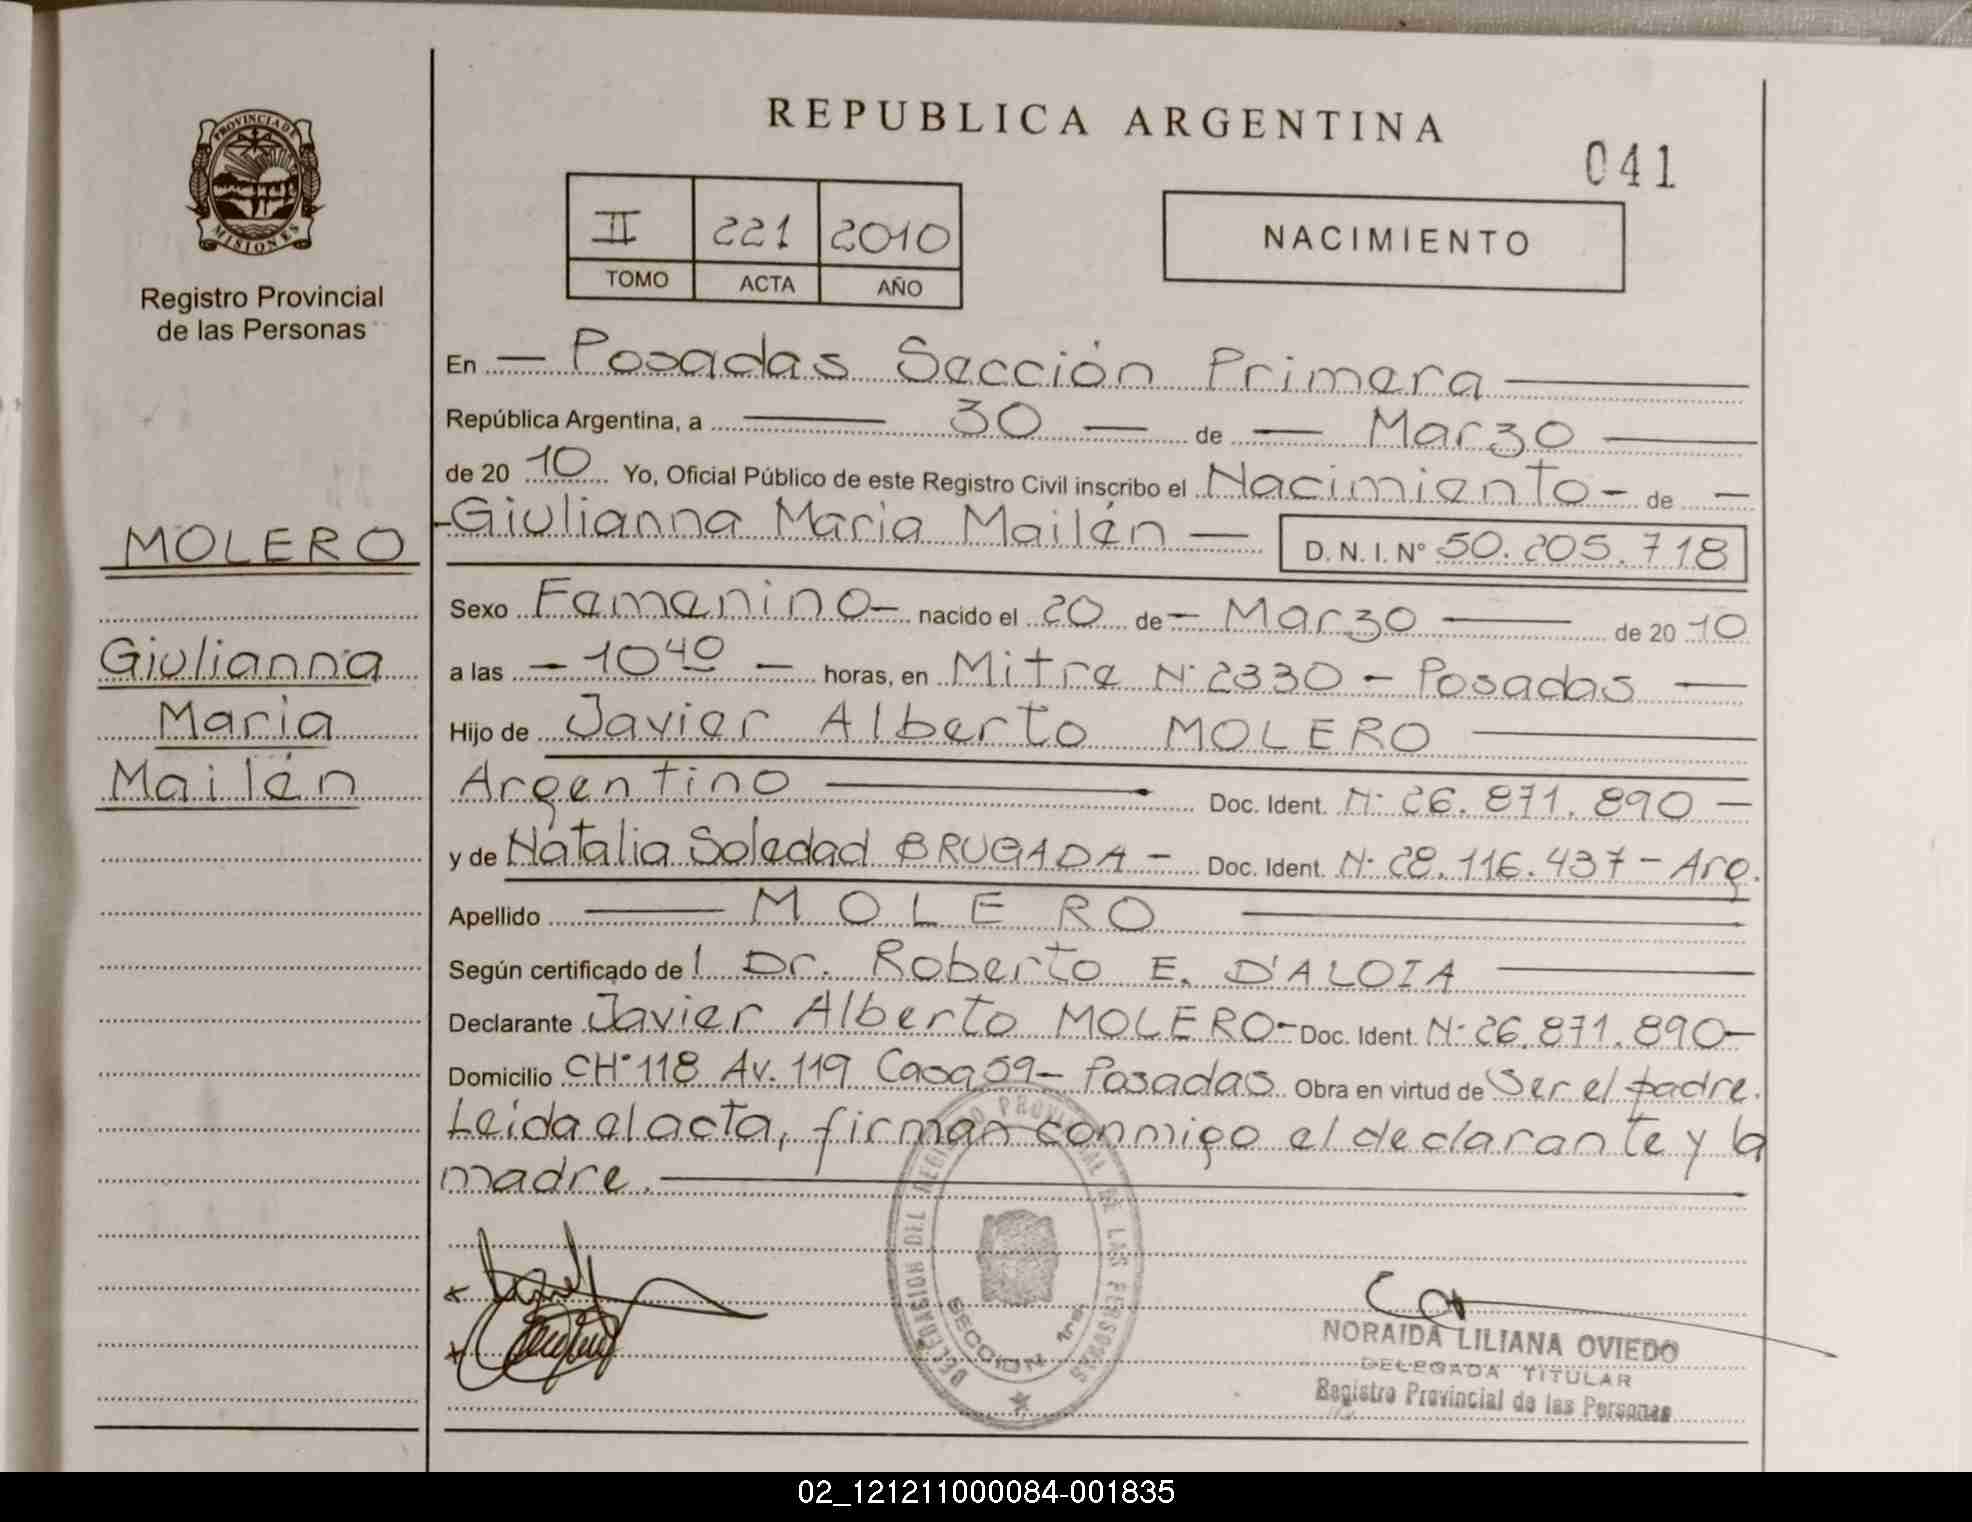 REPUBLICA ARGENTINA
041
PROVINCIA DE
MISIONES
Registro Provincial
de las Personas
II 221 2010
TOMO ACTA AÑO
NACIMIENTO
En — Posadas Sección Primera —
República Argentina, a — 30 — de — Marzo —
de 20 10 Yo, Oficial Público de este Registro Civil inscribo el Nacimiento - de —
- Giulianna Maria Mailén — D.N.I. Nº 50.205.718
MOLERO
Giulianna
Maria
Mailén
Sexo Femenino - nacido el 20 de - Marzo — de 20 10
a las - 10 40 - horas, en Mitre Nº 2330 - Posadas —
Hijo de Javier Alberto MOLERO —
Argentino — Doc. Ident. Nº 26.871.890 —
y de Natalia Soledad BRUGADA - Doc. Ident. Nº 28.116.437 - Arg.
Apellido — MOLERO —
Según certificado de l Dr. Roberto E. D'ALOIA —
Declarante Javier Alberto MOLERO - Doc. Ident. Nº 26.871.890 -
Domicilio CHº 118 Av. 119 Casa 59 - Posadas Obra en virtud de Ser el padre.
Leida el acta, firman conmigo el declarante y la
madre. —
DELEGACION DEL REGISTRO PROVINCIAL DE LAS PERSONAS
SECCION 1ra
NORAIDA LILIANA OVIEDO
DELEGADA TITULAR
Registro Provincial de las Personas
02_121211000084-001835